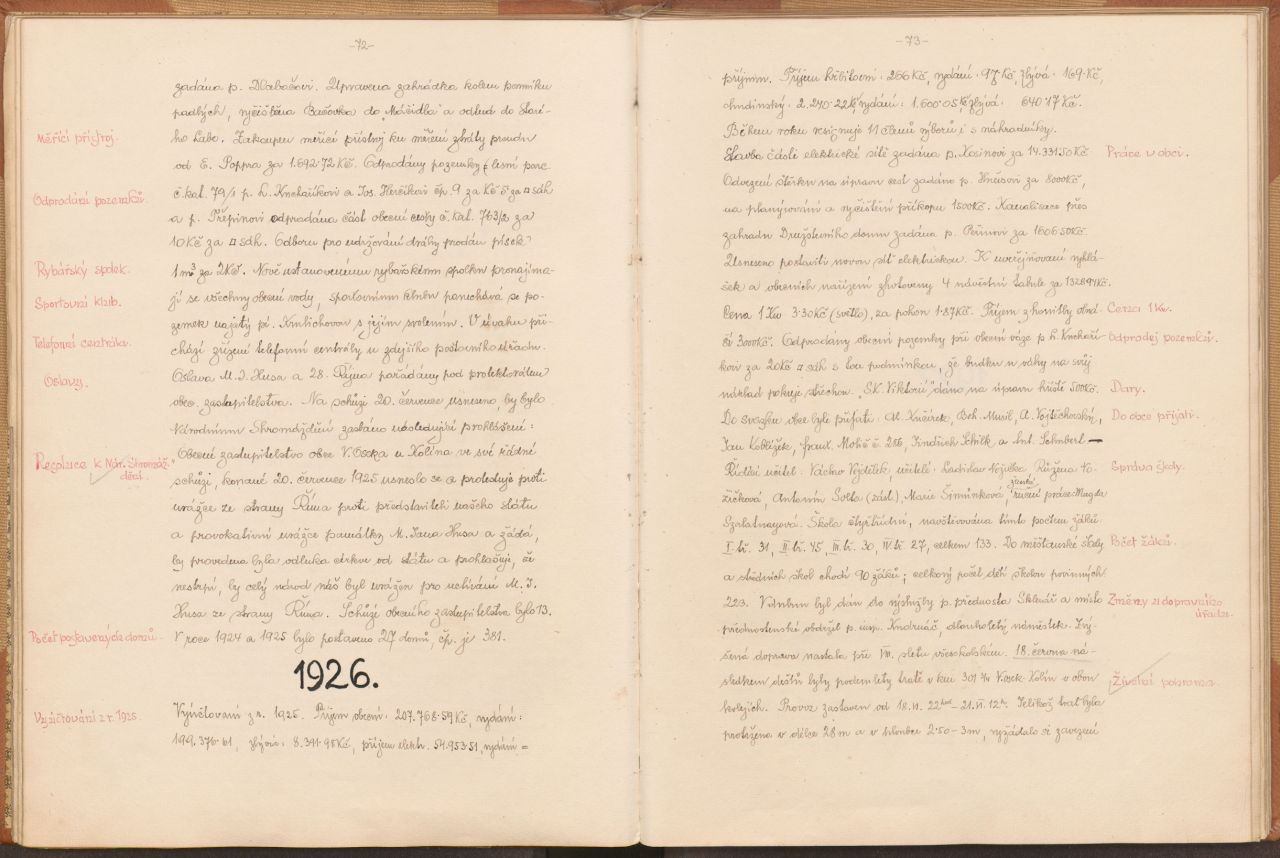 -72-
zadána p. Dlabačovi. Upravena zahrádka kolem pomníku
padlých, vyčištěna Bačovka do "Mácidla" a odtud do Staré-
Měřící přístroj.
ho Labe. Zakoupen měřící přístroj ku měření ztráty proudu
od E. Poppra za 1.692·72 Kč. Odprodány pozemky: lesní parc.
Odprodání pozemků.
č. kat. 79/1 p. L. Knehaříkovi a Jos. Herčíkovi čp. 9 za Kč 5 za □ sáh
a p. Přepinovi odprodána část obecní cesty č. kat. 763/2 za
10 Kč za □ sáh. Odboru pro udržování dráhy prodán písek
Rybářský spolek.
1 m³ za 2 Kč. Nově ustanovenému rybářskému spolku pronajíma-
Sportovní klub.
jí se všechny obecní vody, sportovnímu klubu ponechává se po-
zemek najatý pí. Krulichovou s jejím svolením. V úvahu při-
Telefonní centrála.
chází zřízení telefonní centrály u zdejšího poštovního úřadu.
Oslavy.
Oslava M. J. Husa a 28. Října pořádány pod protektorátem
obec. zastupitelstva. Na schůzi 20. července usneseno, by bylo
Národnímu Shromáždění zasláno následující prohlášení:
Resoluce k Nár. Shromáž-
dění.
"Obecní zastupitelstvo obce V. Oseka u Kolína ve své řádné
schůzi, konané 20. července 1925 usneslo se a protestuje proti
urážce ze strany Říma proti představiteli našeho státu
a provokativní urážce památky M. Jana Husa a žádá,
by provedena byla odluka církve od státu a prohlašuje, že
nestrpí, by celý národ náš byl urážen pro uctívání M. J.
Husa ze strany Říma. Schůzí obecního zastupitelstva bylo 13.
Počet postavených domů.
V roce 1924 a 1925 bylo postaveno 27 domů, čp. je 381.
1926.
Vyúčtování z r. 1925.
Vyúčtování z r. 1925. Příjem obecní: 207.768·59 Kč, vydání:
199.376·61, zbývá: 8.391·98 Kč, příjem elektr. 54.953·51, vydání =
-73-
příjmu. Příjem hřbitovní: 266 Kč, vydání: 97 Kč, zbývá: 169 Kč,
chudinský: 2.240·22 Kč, vydání: 1.600·05 Kč, zbývá: 640·17 Kč.
Během roku resignuje 11 členů výboru i s náhradníky.
Stavba části elektrické sítě zadána p. Kosinovi za 14.331.50 Kč
Práce v obci.
Odvezení štěrku na úpravu cest zadáno p. za 8000 Kč,
na planýrování a vyčištění příkopu 1500 Kč. Kanalisace přes
zahradu Družstevního domu zadána p. Peřinovi za 1606.50 Kč.
Usneseno postaviti novou síť elektrickou. K uveřejňování vyhlá-
šek a obecních nařízení zhotoveny 4 návěstní tabule za 1328.94 Kč.
Cena 1 Kw. 3·30 Kč (světlo), za pohon 1·87 Kč. Příjem z honitby činí
Cena 1 Kw.
3000 Kč. Odprodány obecní pozemky při obecní váze p. L. Knehaří-
Odprodej pozemků.
kovi za 20 Kč □ sáh s tou podmínkou, že budku u váhy na svůj
náklad pokryje střechou. "SK. Viktorii" dáno na úpravu hřiště 500 Kč.
Dary.
Do svazku obce byli přijati: Al. Boh. Musil, A. Vojtěchovský,
Do obce přijati.
Jan Koblížek, frant. Mokš č. 286, Jindřich Schilk a Ant. Schubert —
Řídící učitel: Václav Vojtíšek, učitelé: Ladislav Růžena Ro-
Správa školy.
žičková, Antonín Šolta (zást.), Marie Šimůnková, ženské ruční práce: Magda
Szalatnayová. Škola čtyřtřídní, navštěvována tímto počtem žáků:
I. tř. 31, II. tř. 45, III. tř. 30, IV. tř. 27, celkem 133. Do měšťanské školy
Počet žáků.
a středních škol chodí 90 žáků; celkový počet dětí školou povinných
223. Vlétním byl dán do výslužby p. přednosta Sklenář a místo
Změny u dopravního
úřadu.
přednostenské obdržel p. insp. Kudrnáč, dlouholetý náměstek. Zvý-
šená doprava nastala při VIII. sletu všesokolském. 18. června ná-
sledkem dešťů byly podemlety tratě v km 301·4 V. Osek-Kolín v obou
Živelní pohroma.
kolejích. Provoz zastaven od 18. VI. 22 hod. - 21. VI. 12 h. Jelikož trať byla
protržena v délce 28 m a v hloubce 2·50 - 3 m, vyžádalo si zavezení